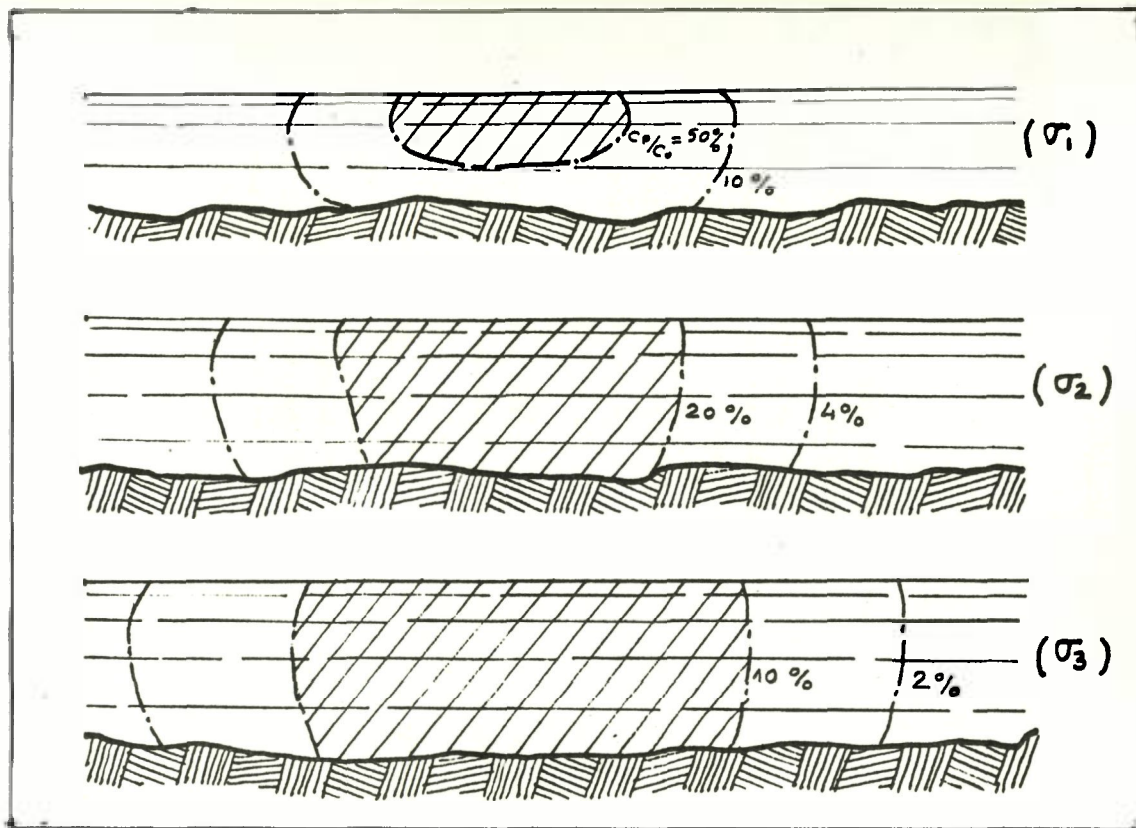 Cp/C₀ = 50%
10 %
(σ₁)
20 %
4%
(σ₂)
10 %
2%
(σ₃)